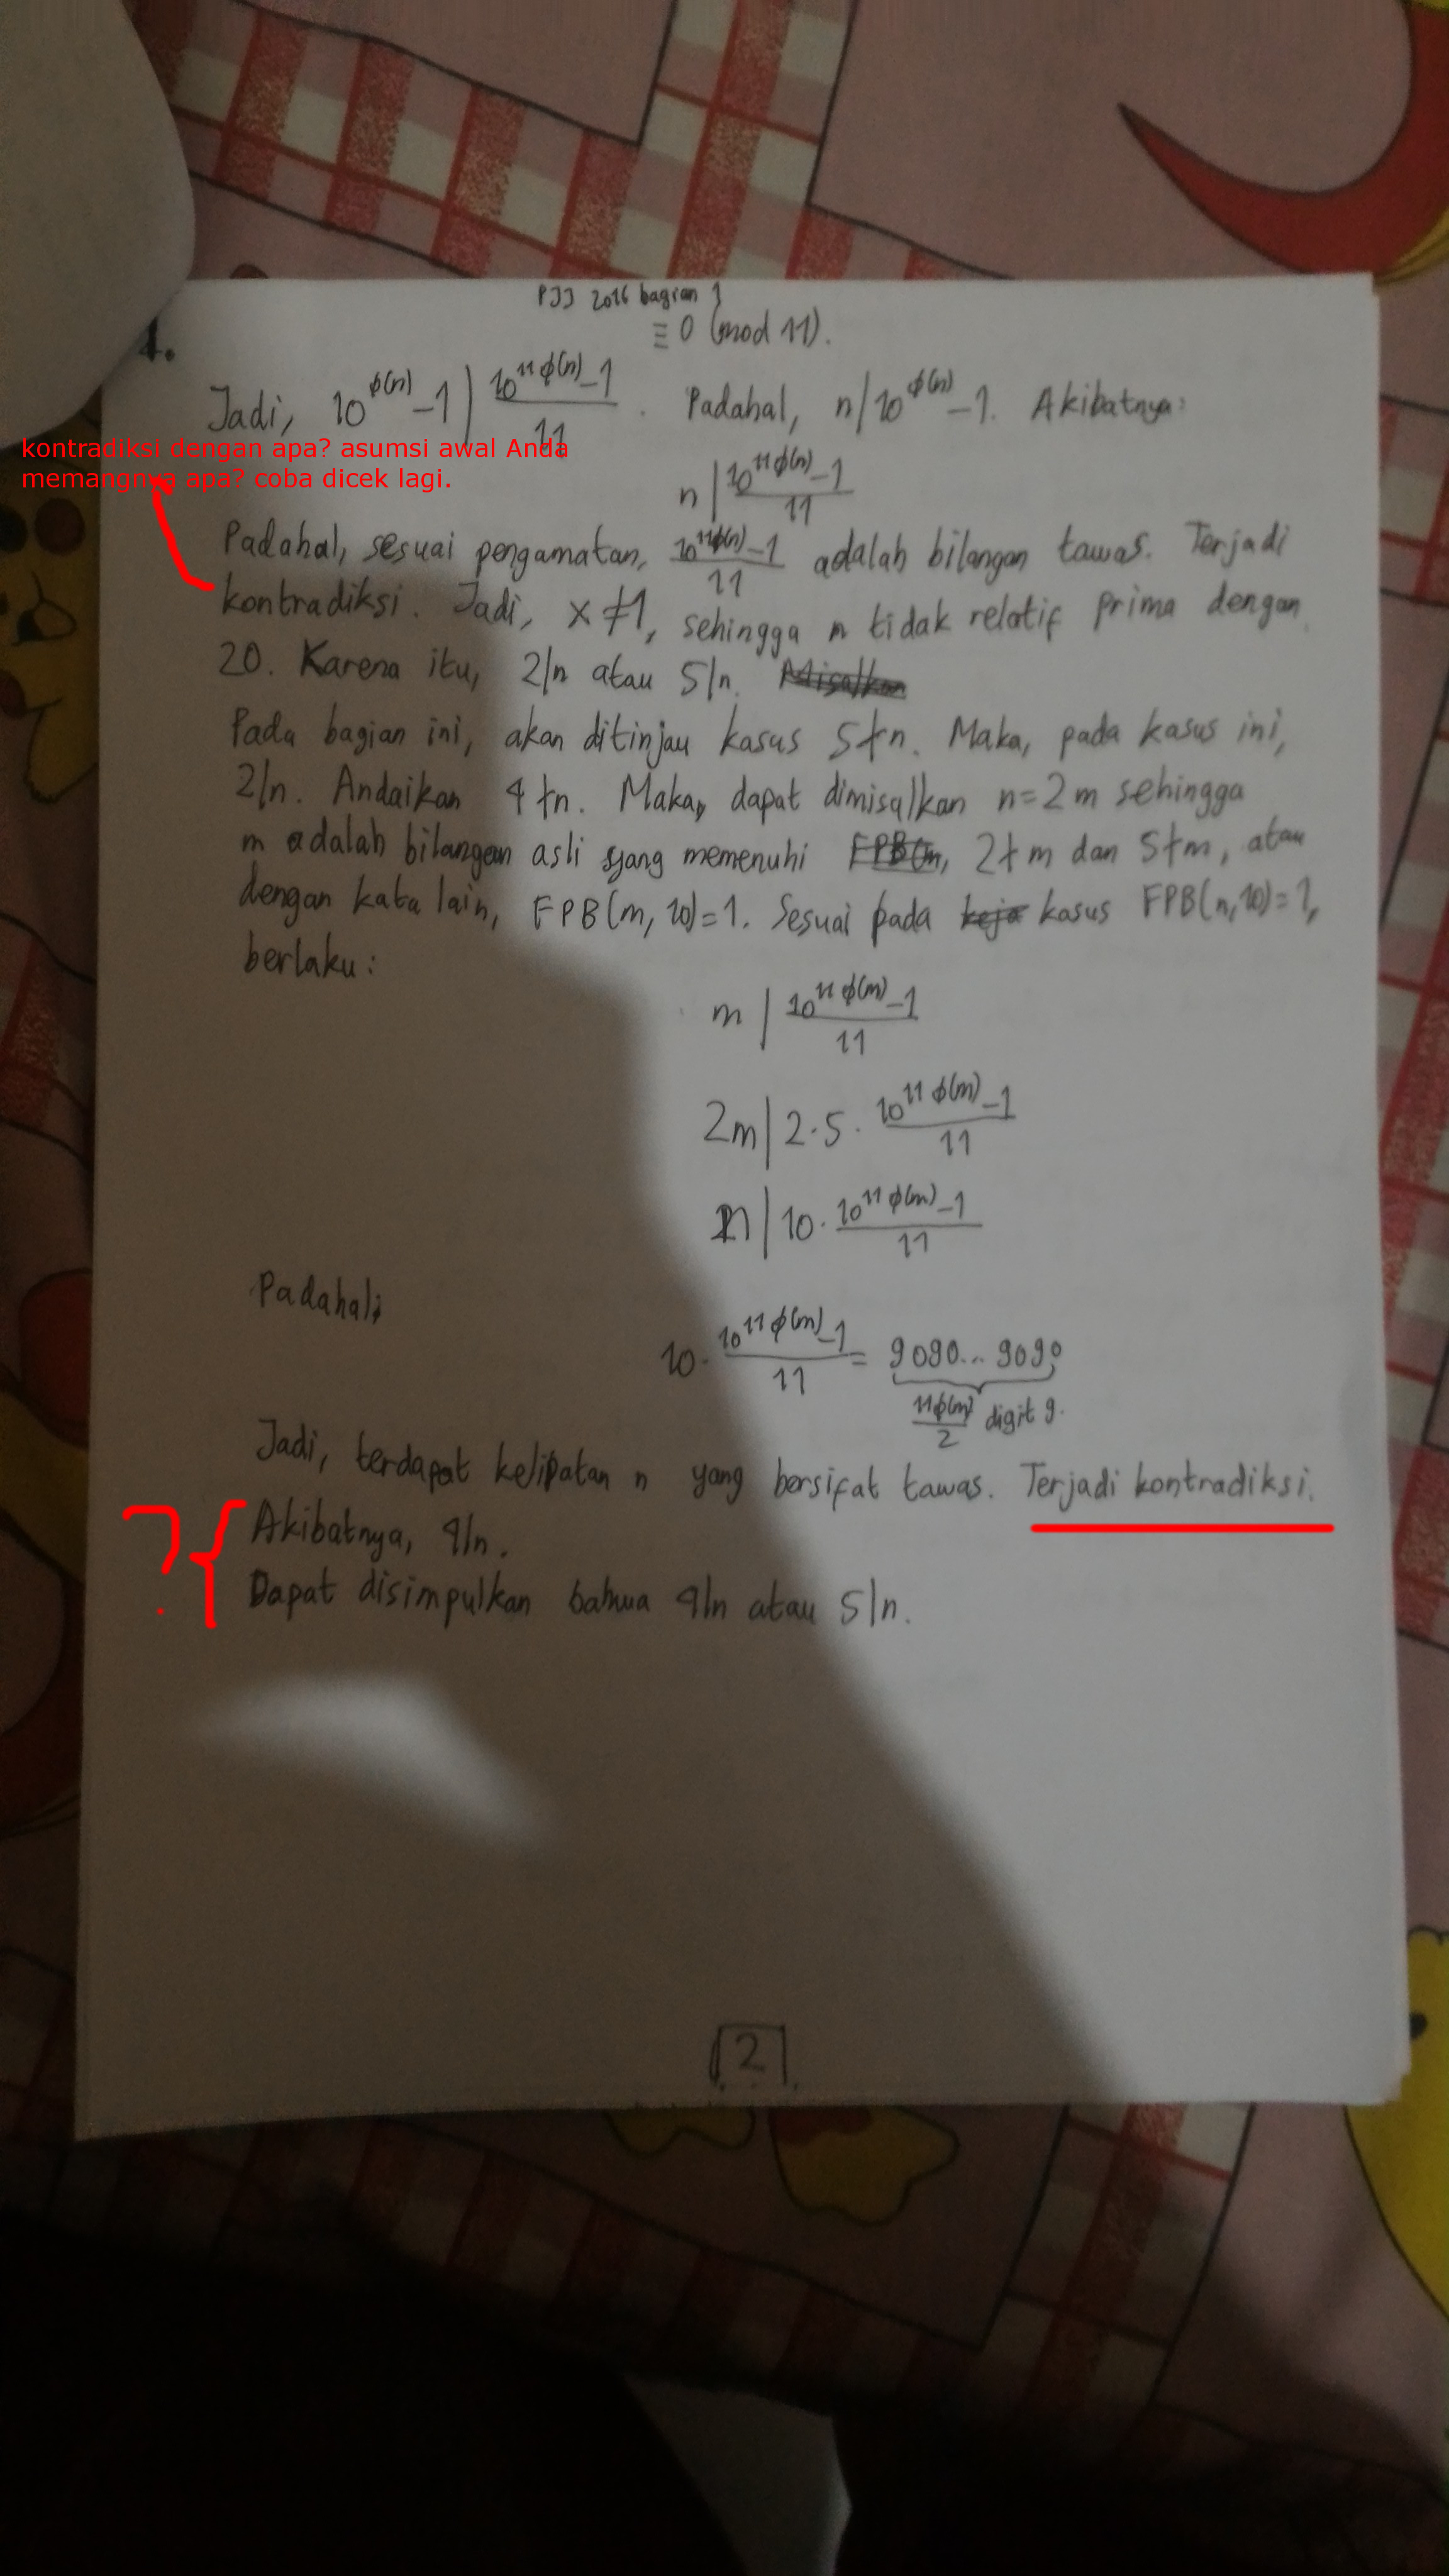 PJJ 2016 bagian 1
≡ 0 (mod 11).
1.
Jadi, 10^φ(n) - 1 | (10^11φ(n) - 1)/11. Padahal, n | 10^φ(n) - 1. Akibatnya:
kontradiksi dengan apa? asumsi awal Anda
memangnya apa? coba dicek lagi.
n | (10^11φ(n) - 1)/11
Padahal, sesuai pengamatan, (10^11φ(n) - 1)/11 adalah bilangan tawas. Terjadi
kontradiksi. Jadi, x ≠ 1, sehingga n tidak relatif prima dengan
20. Karena itu, 2|n atau 5|n. Misalkan
Pada bagian ini, akan ditinjau kasus 5∤n. Maka, pada kasus ini,
2|n. Andaikan 4∤n. Maka, dapat dimisalkan n=2m sehingga
m adalah bilangan asli yang memenuhi FPB(m, 2∤m dan 5∤m, atau
dengan kata lain, FPB(m, 10)=1. Sesuai pada keja kasus FPB(n,10)=1,
berlaku:
m | (10^11φ(m) - 1)/11
2m | 2·5·(10^11φ(m) - 1)/11
n | 10·(10^11φ(m) - 1)/11
Padahal;
10·(10^11φ(m) - 1)/11 = 9090...9090
11φ(m)/2 digit 9.
Jadi, terdapat kelipatan n yang bersifat tawas. Terjadi kontradiksi.
? { Akibatnya, 4|n.
Dapat disimpulkan bahwa 4|n atau 5|n.
2